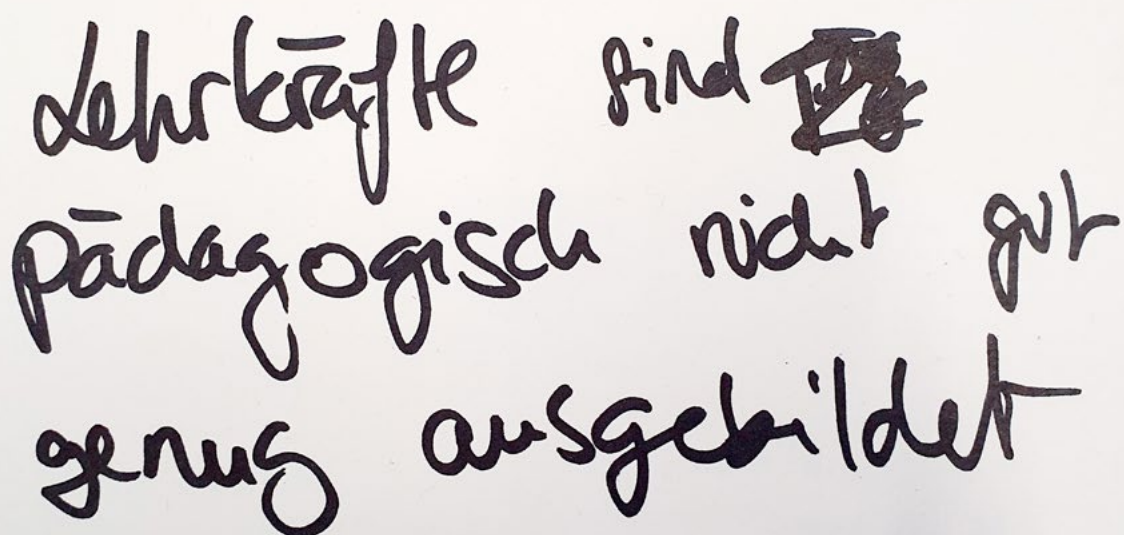 Lehrkräfte sind
pädagogisch nicht gut
genug ausgebildet